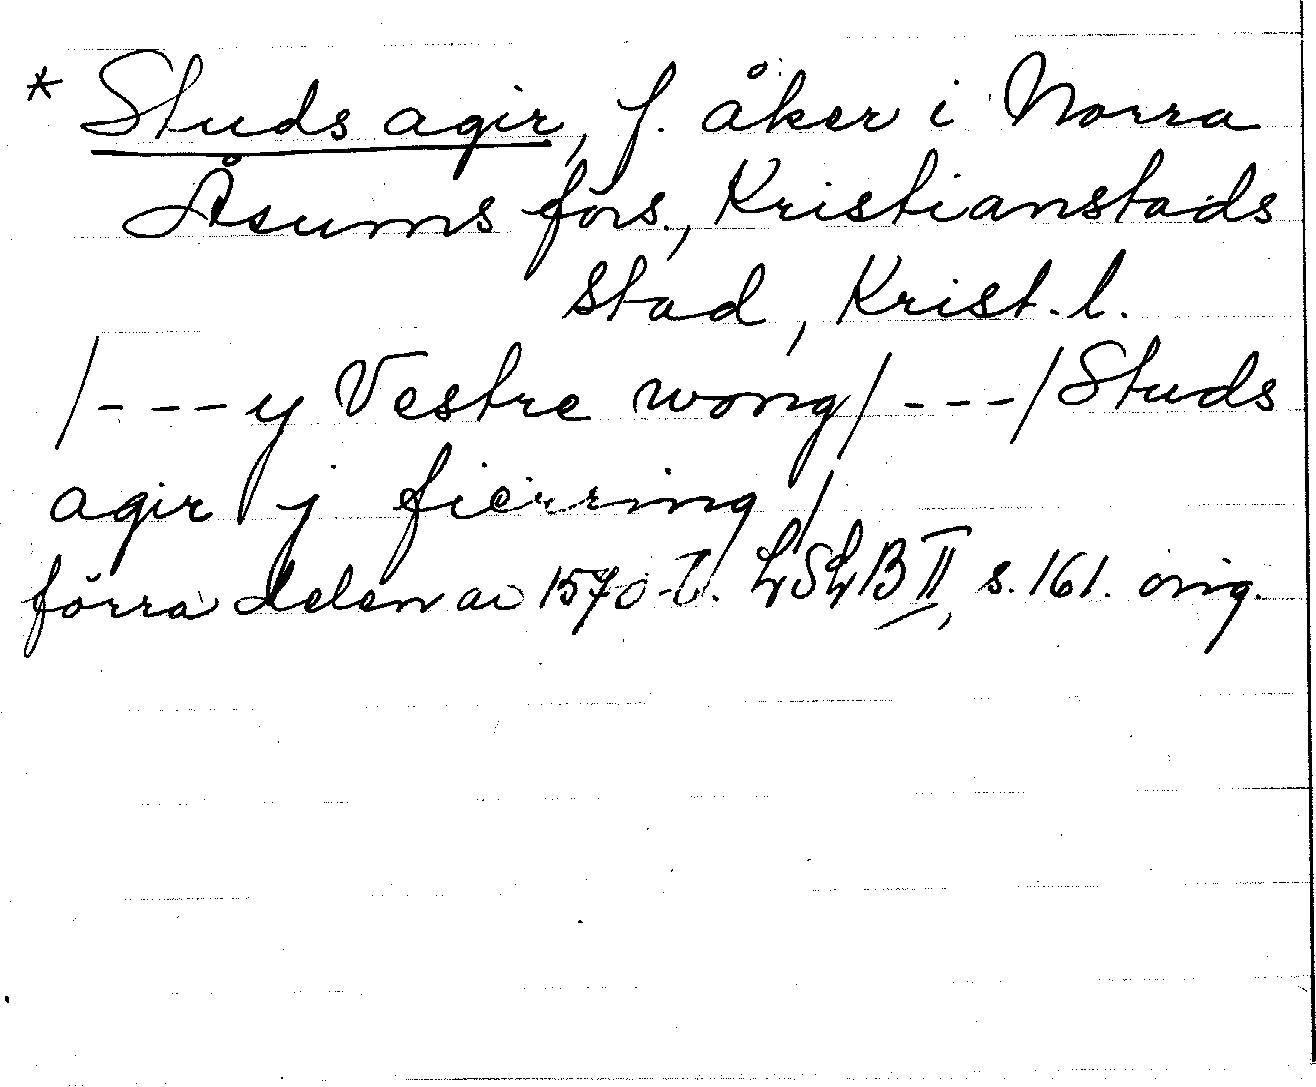 * Studs agir, f. åker i Norra
Åsums förs., Kristianstads
stad, Krist. l.
/---y Vestre wong/---/Studs
agir j fierring/
förra delen av 1570-t. LSLB II, s. 161. orig.